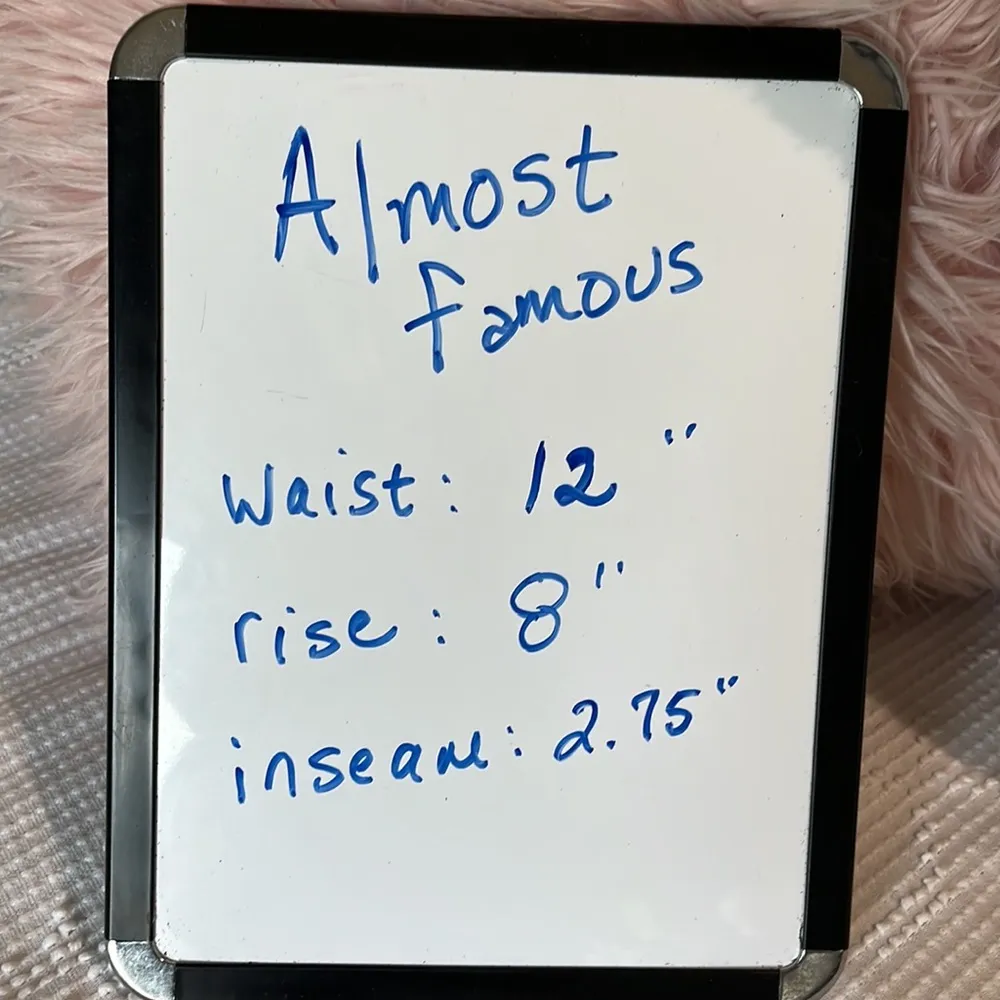 Almost
famous
Waist: 12"
rise: 8"
inseam: 2.75"